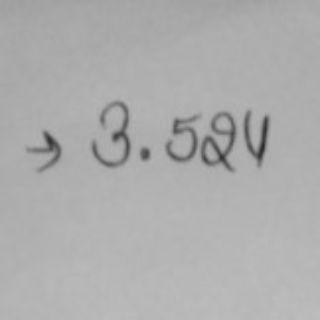 → 3.524